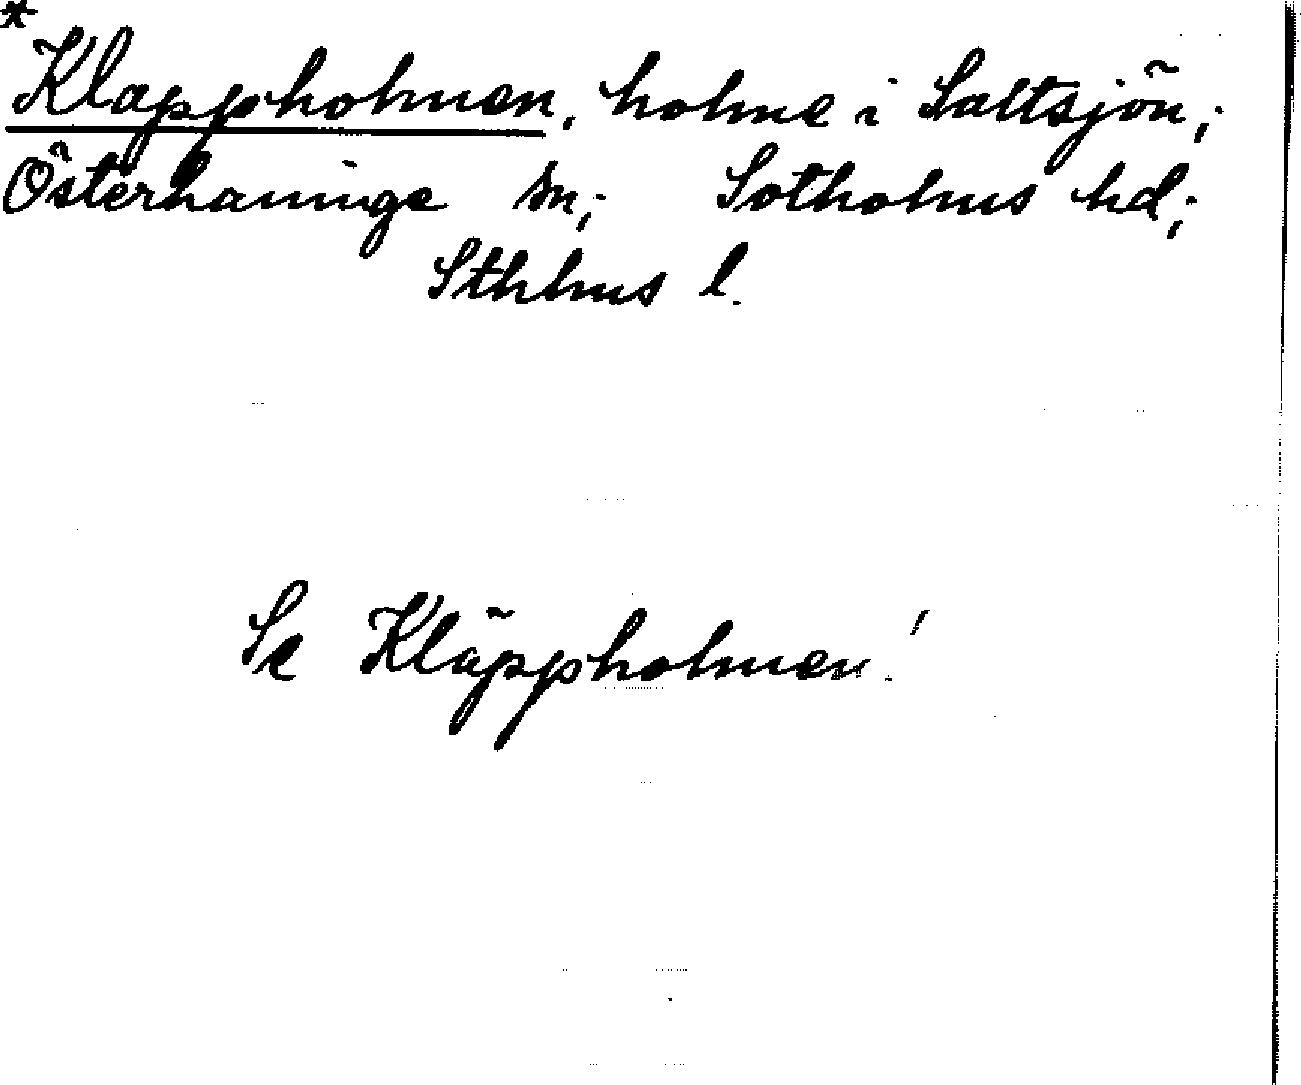 *
Klappholmen, holme i Saltsjön;
Österhaninge sn; Sotholms hd;
Sthlms l.
Se Kläppholmen!